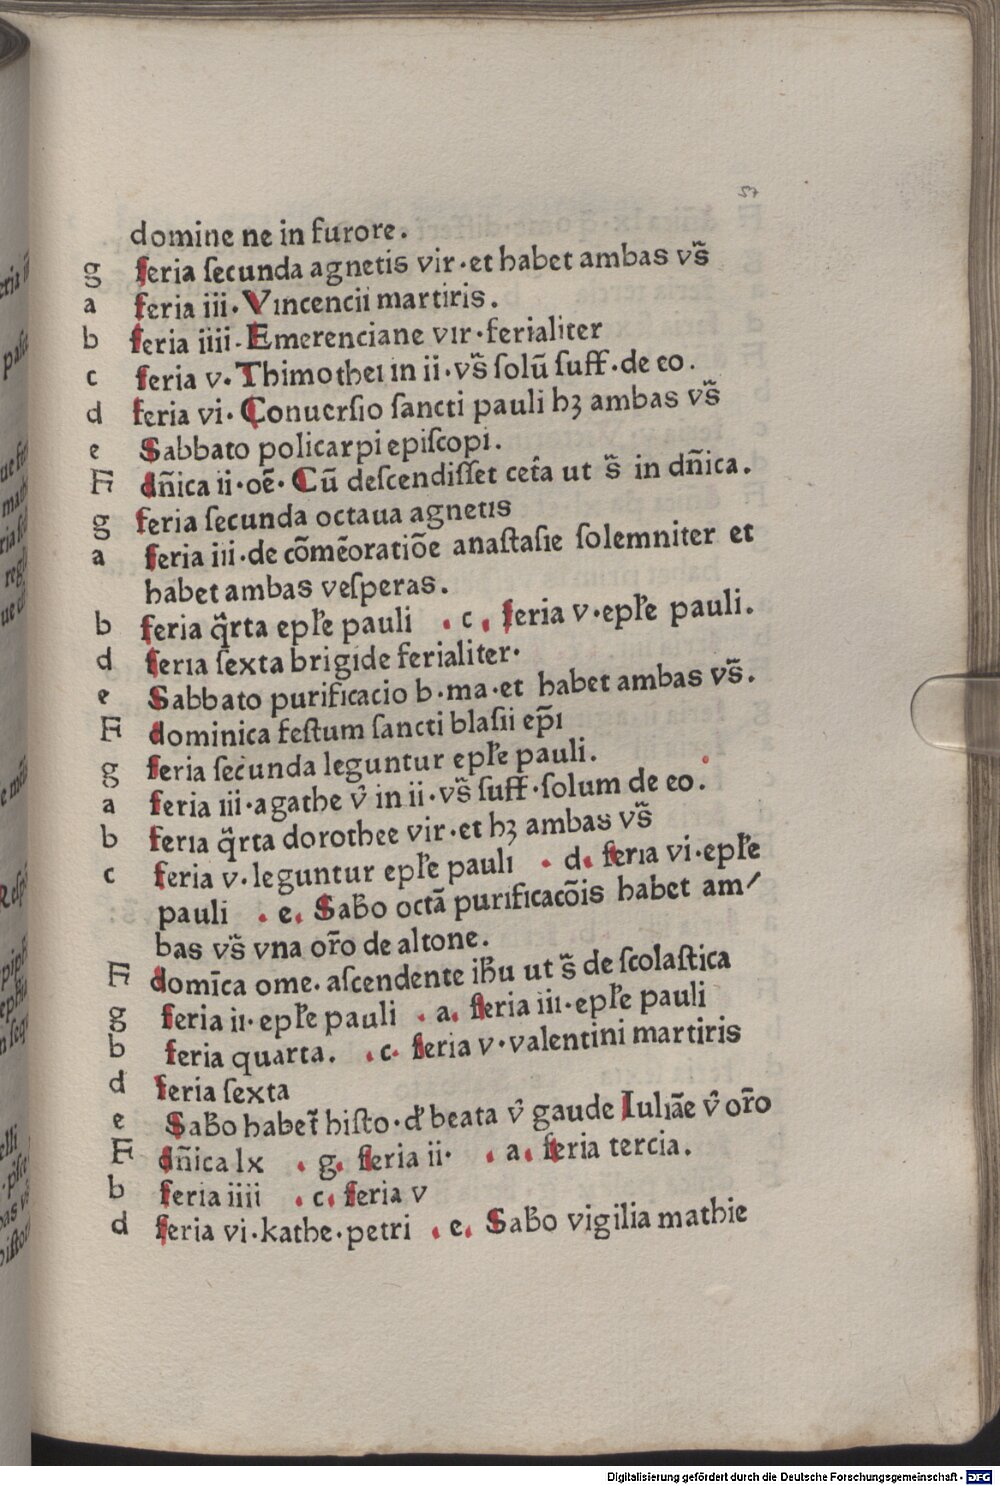 57
domine ne in furore.
g feria ſecunda agnetis vir·et habet ambas vs̃
a feria iii·Vincencii martiris.
b feria iiii·Emerenciane vir·ferialiter
c feria v·Thimothei in ii·vs̃ ſolū ſuff·de eo.
d feria vi·Conuerſio ſancti pauli hꝫ ambas vs̃
e Sabbato policarpi epiſcopi.
F dn̄ica ii·oē·Cū deſcendiſſet cet̄a ut s̃ in dn̄ica.
g feria ſecunda octaua agnetis
a feria iii·de cōmēoratiōe anaſtaſie ſolemniter et
habet ambas veſperas.
b feria q̄rta epl̄e pauli . c . feria v·epl̄e pauli.
d feria ſexta brigide ferialiter·
e Sabbato purificacio b·ma·et habet ambas vs̃.
F dominica feſtum ſancti blaſii ep̄i
g feria ſecunda leguntur epl̄e pauli.
a feria iii·agathe v̂ in ii·vs̃ ſuff·ſolum de eo.
b feria q̄rta dorothee vir·et hꝫ ambas vs̃
c feria v·leguntur epl̄e pauli . d. feria vi·epl̄e
pauli . e. Sab̄o octā purificacōis habet am⸗
bas vs̃ vna or̄o de altone.
F domīca ome. aſcendente ih̄u ut s̃ de ſcolaſtica
g feria ii·epl̄e pauli . a. feria iii·epl̄e pauli
b feria quarta. . c. feria v·valentini martiris
d feria ſexta
e Sab̄o habet̄ hiſto·d' beata v̂ gaude Iuliāe v̂ or̄o
F dn̄ica lx . g. feria ii· . a. feria tercia.
b feria iiii . c. feria v
d feria vi·kathe·petri . e. Sab̄o vigilia mathie
Digitalisierung gefördert durch die Deutsche Forschungsgemeinschaft - DFG